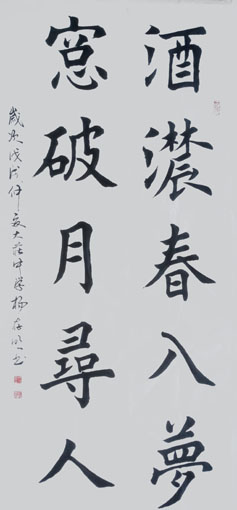 酒濃春入夢
窓破月尋人
歲次戊戌仲夏大莊中學楊存順書